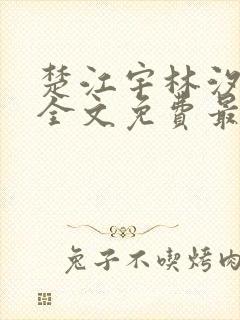 楚江宇林汐
全文免费最
兔子不喫烤肉